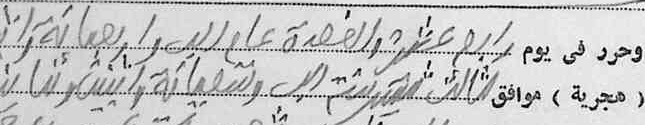 وحرر في يوم رابع عشر ذو القعدة عام الف واربعمائة واثن
( هجرية ) موافق الثالث شتنبر الف وتسعمائة واثنين وثمانين